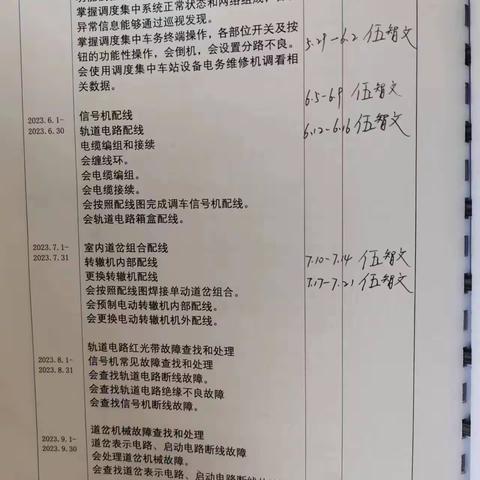 掌握调度集中系统正常状态和网络组成，
异常信息能够通过巡视发现。
掌握调度集中车务终端操作，各部位开关及按
钮的功能性操作，会倒机，会设置分路不良。
会使用调度集中车站设备电务维修机调看相
关数据。
5.29-6.2 伍智文
6.5-6.9 伍智文
2023.6.1-
2023.6.30
信号机配线
轨道电路配线
电缆编组和接续
会缠线环。
会电缆编组。
会电缆接续。
会按照配线图完成调车信号机配线。
会轨道电路箱盒配线。
6.12-6.16 伍智文
2023.7.1-
7.31
室内道岔组合配线
转辙机内部配线
更换转辙机配线
会按照配线图焊接单动道岔组合。
会预制电动转辙机内部配线。
会更换电动转辙机机外配线。
7.10-7.14 伍智文
7.17-7.21 伍智文
2023.8.1-
8.31
轨道电路红光带故障查找和处理
信号机常见故障查找和处理
会查找轨道电路断线故障。
会查找轨道电路绝缘不良故障
会查找信号机断线故障。
2023.9.1-
9.30
道岔机械故障查找和处理
道岔表示电路、启动电路断线故障
会处理道岔机械故障。
会查找道岔表示电路、启动电路断线